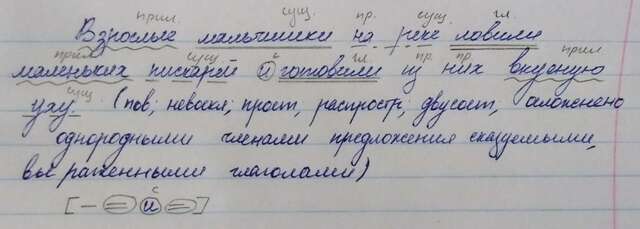 прил. сущ. пр. сущ. гл.
Взрослые мальчишки на реке ловили
прил. сущ. с. гл. пр. пр. прил.
маленьких пискарей и готовили из них вкусную
сущ.
уху. (пов; невоскл; прост, распростр; двусост, осложнено
однородными членами предложения сказуемыми,
выраженными глаголами)
с
[- = и =]